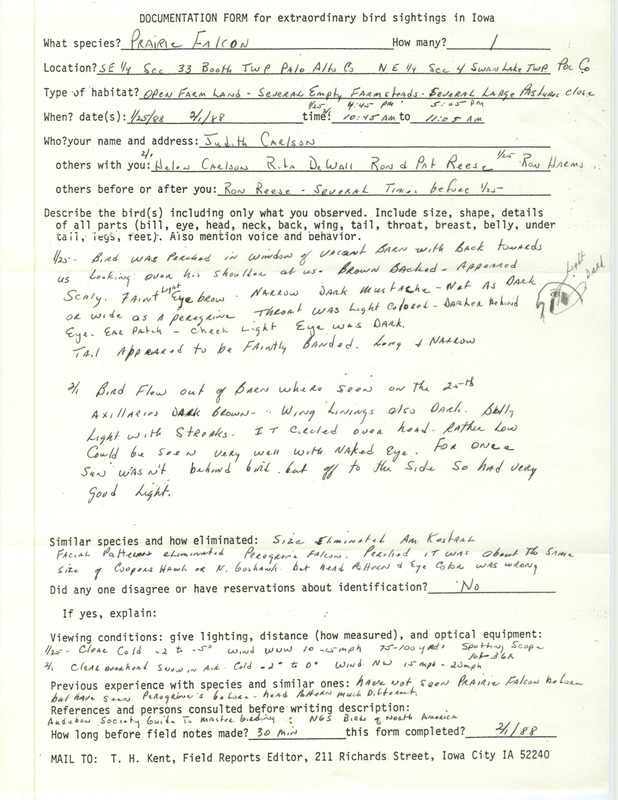 DOCUMENTATION FORM for extraordinary bird sightings in Iowa
What species? Prairie Falcon How many? 1
Location? SE 1/4 Sec 33 Booth TWP Palo Alto Co NE 1/4 Sec 4 Swan Lake TWP Poc Co
Type of habitat? Open Farm Land - Several Empty Farmsteads - Several Large Pastures close
1/25 4:45 PM 5:05 PM
When? date(s): 1/25/88 2/1/88 time: 2/1 10:45 AM to 11:05 AM
Who? your name and address: Judith Carlson
others with you: 2/1 Helen Carlson Rita DeWall Ron & Pat Reese 1/25 Ron Harms
others before or after you: Ron Reese - Several Times before 1/25-
Describe the bird(s) including only what you observed. Include size, shape, details
of all parts (bill, eye, head, neck, back, wing, tail, throat, breast, belly, under
tail, legs, feet). Also mention voice and behavior.
1/25- Bird was perched in window of vacant Barn with Back towards
us looking over his shoulder at us. Brown Backed - Appeared
Scaly. Faint Light Eyebrow. Narrow Dark Mustache - Not As Dark
or wide as a peregrine Throat was Light Colored - Darker behind
Eye. Ear Patch - Cheek Light Eye was Dark.
Tail Appeared to be Faintly Banded. Long & Narrow
Light
Dark
2/1 Bird Flew out of Barn where seen on the 25th
Axillaries Dark brown - Wing Linings also Dark. Belly
Light with Streaks. IT Circled over head - Rather Low
Could be seen very well with Naked Eye. For once
Sun wasn't behind bird but off to the Side So had very
good Light.
Similar species and how eliminated: Size Eliminated Am Kestral
Facial Patterns eliminated Peregrine Falcon. Perched IT was about the same
size of Coopers Hawk or N. Goshawk but head Pattern & Eye Color was wrong
Did any one disagree or have reservations about identification? No
If yes, explain:
Viewing conditions: give lighting, distance (how measured), and optical equipment:
1/25- Clear Cold -2 to -5° Wind WNW 10-15mph 75-100 yards Spotting Scope
2/1 Clear overhead Snow in Air Cold -2° to 0° Wind NW 15mph - 20mph
Previous experience with species and similar ones: have not seen Prairie Falcon before
but have seen Peregrine's before - head pattern much Different
References and persons consulted before writing description:
Audubon Society Guide To Master birding : NGS Birds of North America
How long before field notes made? 30 min this form completed? 2/1/88
MAIL TO: T. H. Kent, Field Reports Editor, 211 Richards Street, Iowa City IA 52240